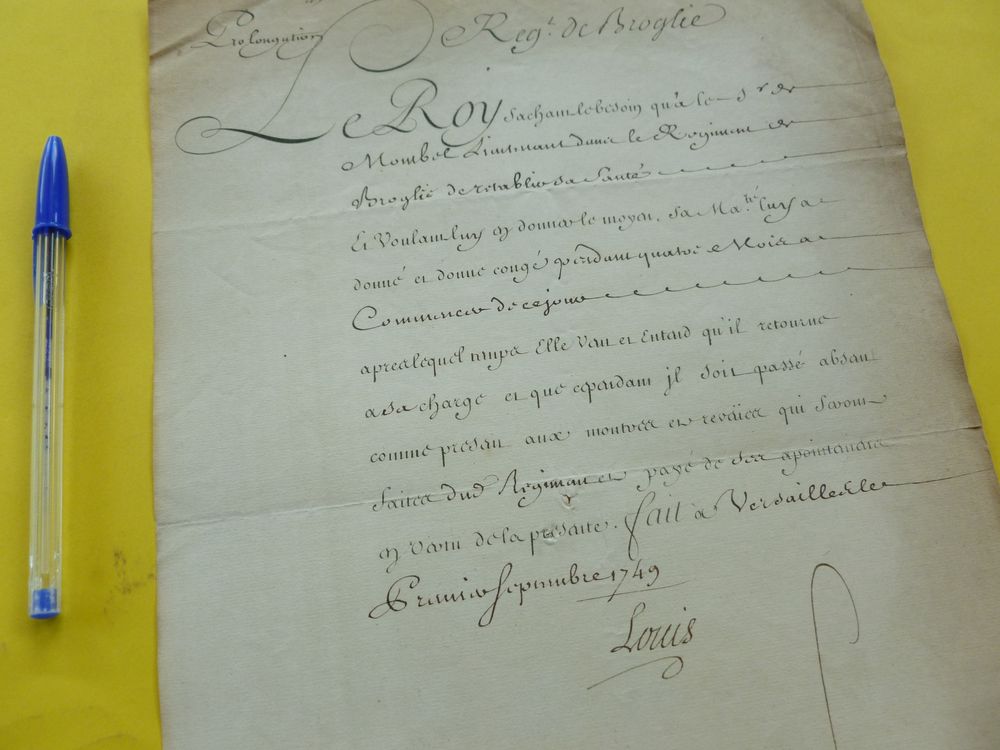 Prolongation
Regt. de Broglie
Le Roy sachant le besoin qu'a le Sr. de
Lieutenant dans le Regiment de
Broglie de retablir sa Santé
Et Voulant luy en donner le moyen, Sa Maté. luy a
donné et donne congé pendant quatre Mois a
Commencer de ce jour
apres lequel temps Elle Veut et Entend qu'il retourne
a sa charge et que cependant jl soit passé absent
comme present aux montres et reveües qui seront
faites dud. Regiment et payé de ses apointemens
en vertu de la presente. fait a Versailles le
Premier Septembre 1749
Louis